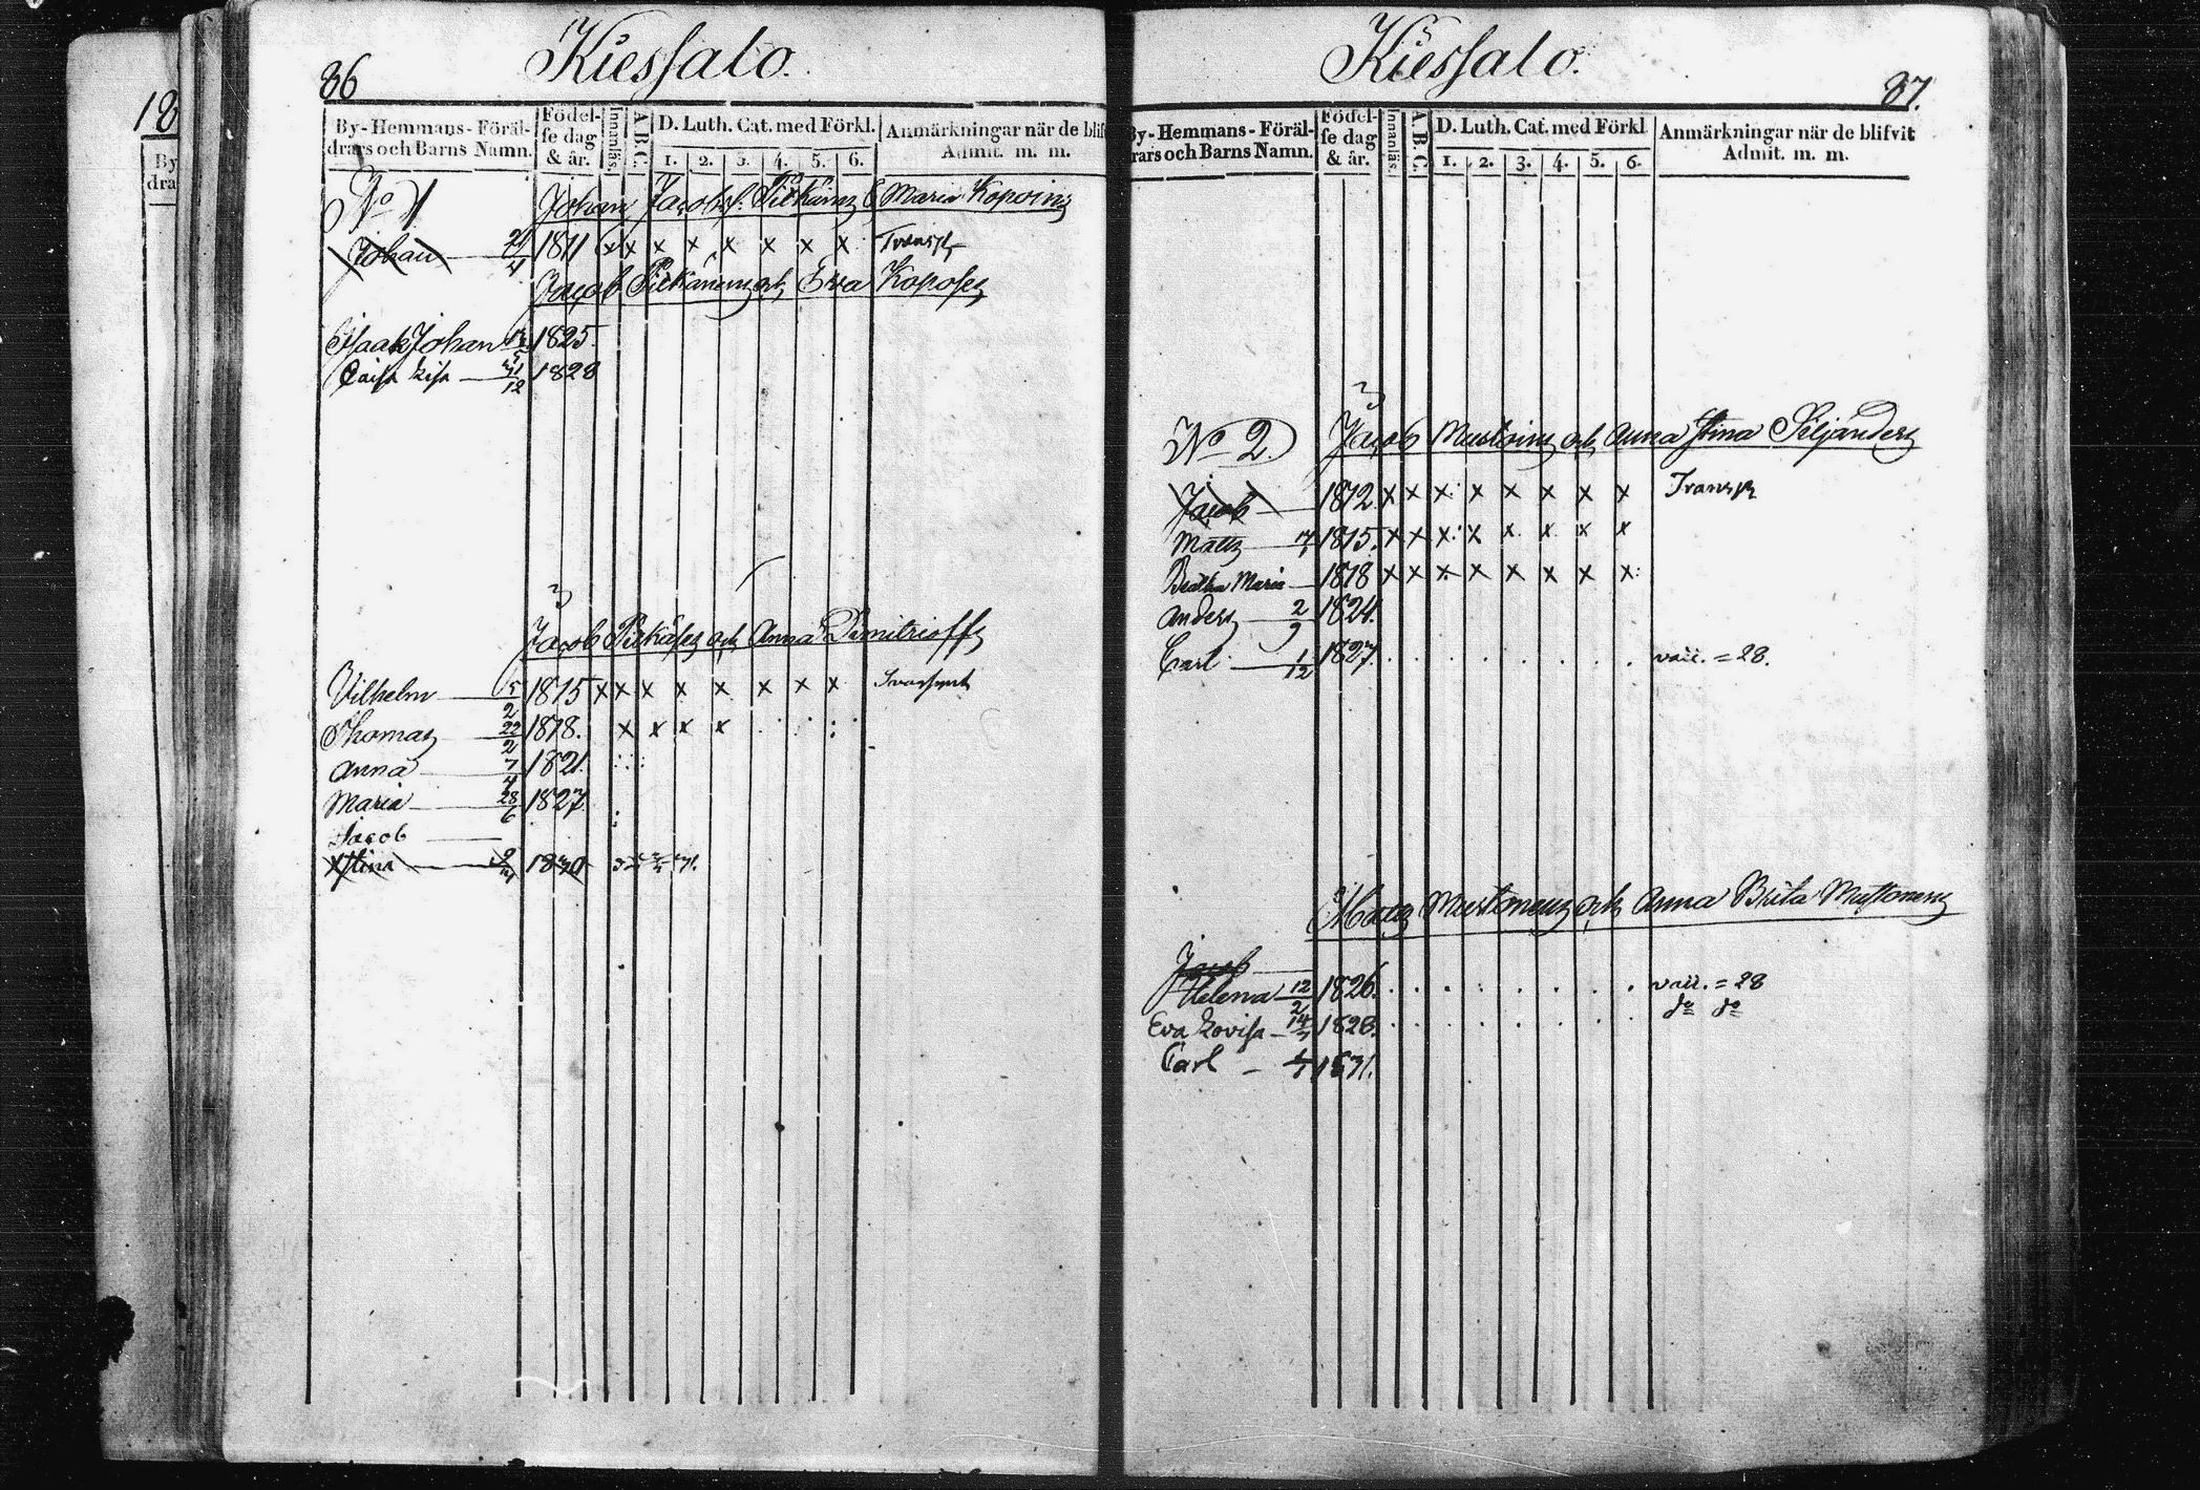 18
By
dra
86
Kiessalo.
By-Hemmans-Föräl-
drars och Barns Namn.
Födel-
se dag
& år.
Innanläs.
A.B.C.
D. Luth. Cat. med Förkl.
1. 2. 3. 4. 5. 6.
Anmärkningar när de blif
Admit. m. m.
No 1
Johan Jacobs. Maria
Johan 1811 x x x x x x x x Transp
Jacob och Eva
Isaak Johan 1825.
Caisa Lisa 12 1828
3
Jacob och Anna Dimitrieff
Vilhelm 5/2 1815 x x x x x x x x Transport
Thomas 22/2 1818. x x x x
Anna 7/4 1821.
Maria 28/6 1827.
Jacob
Stina 1830
Kiessalo.
87.
By-Hemmans-Föräl-
rars och Barns Namn.
Födel-
se dag
& år.
Innanläs.
A.B.C.
D. Luth. Cat. med Förkl
1. 2. 3. 4. 5. 6.
Anmärkningar när de blifvit
Admit. m. m.
3
No 2. Jacob och Anna Stina
Jacob 1812 x x x x x x x x Transp
Matts 1815. x x x x x x x x
Beatha Maria 1818 x x x x x x x x
Anders 2/9 1824.
Carl 1/12 1827. vacc. = 28.
Matts Mustonen och Anna Brita Mustonen
Jacob
Helena 12/2 1826. vacc. = 28
do do
Eva Lovisa 1828.
Carl 1831.